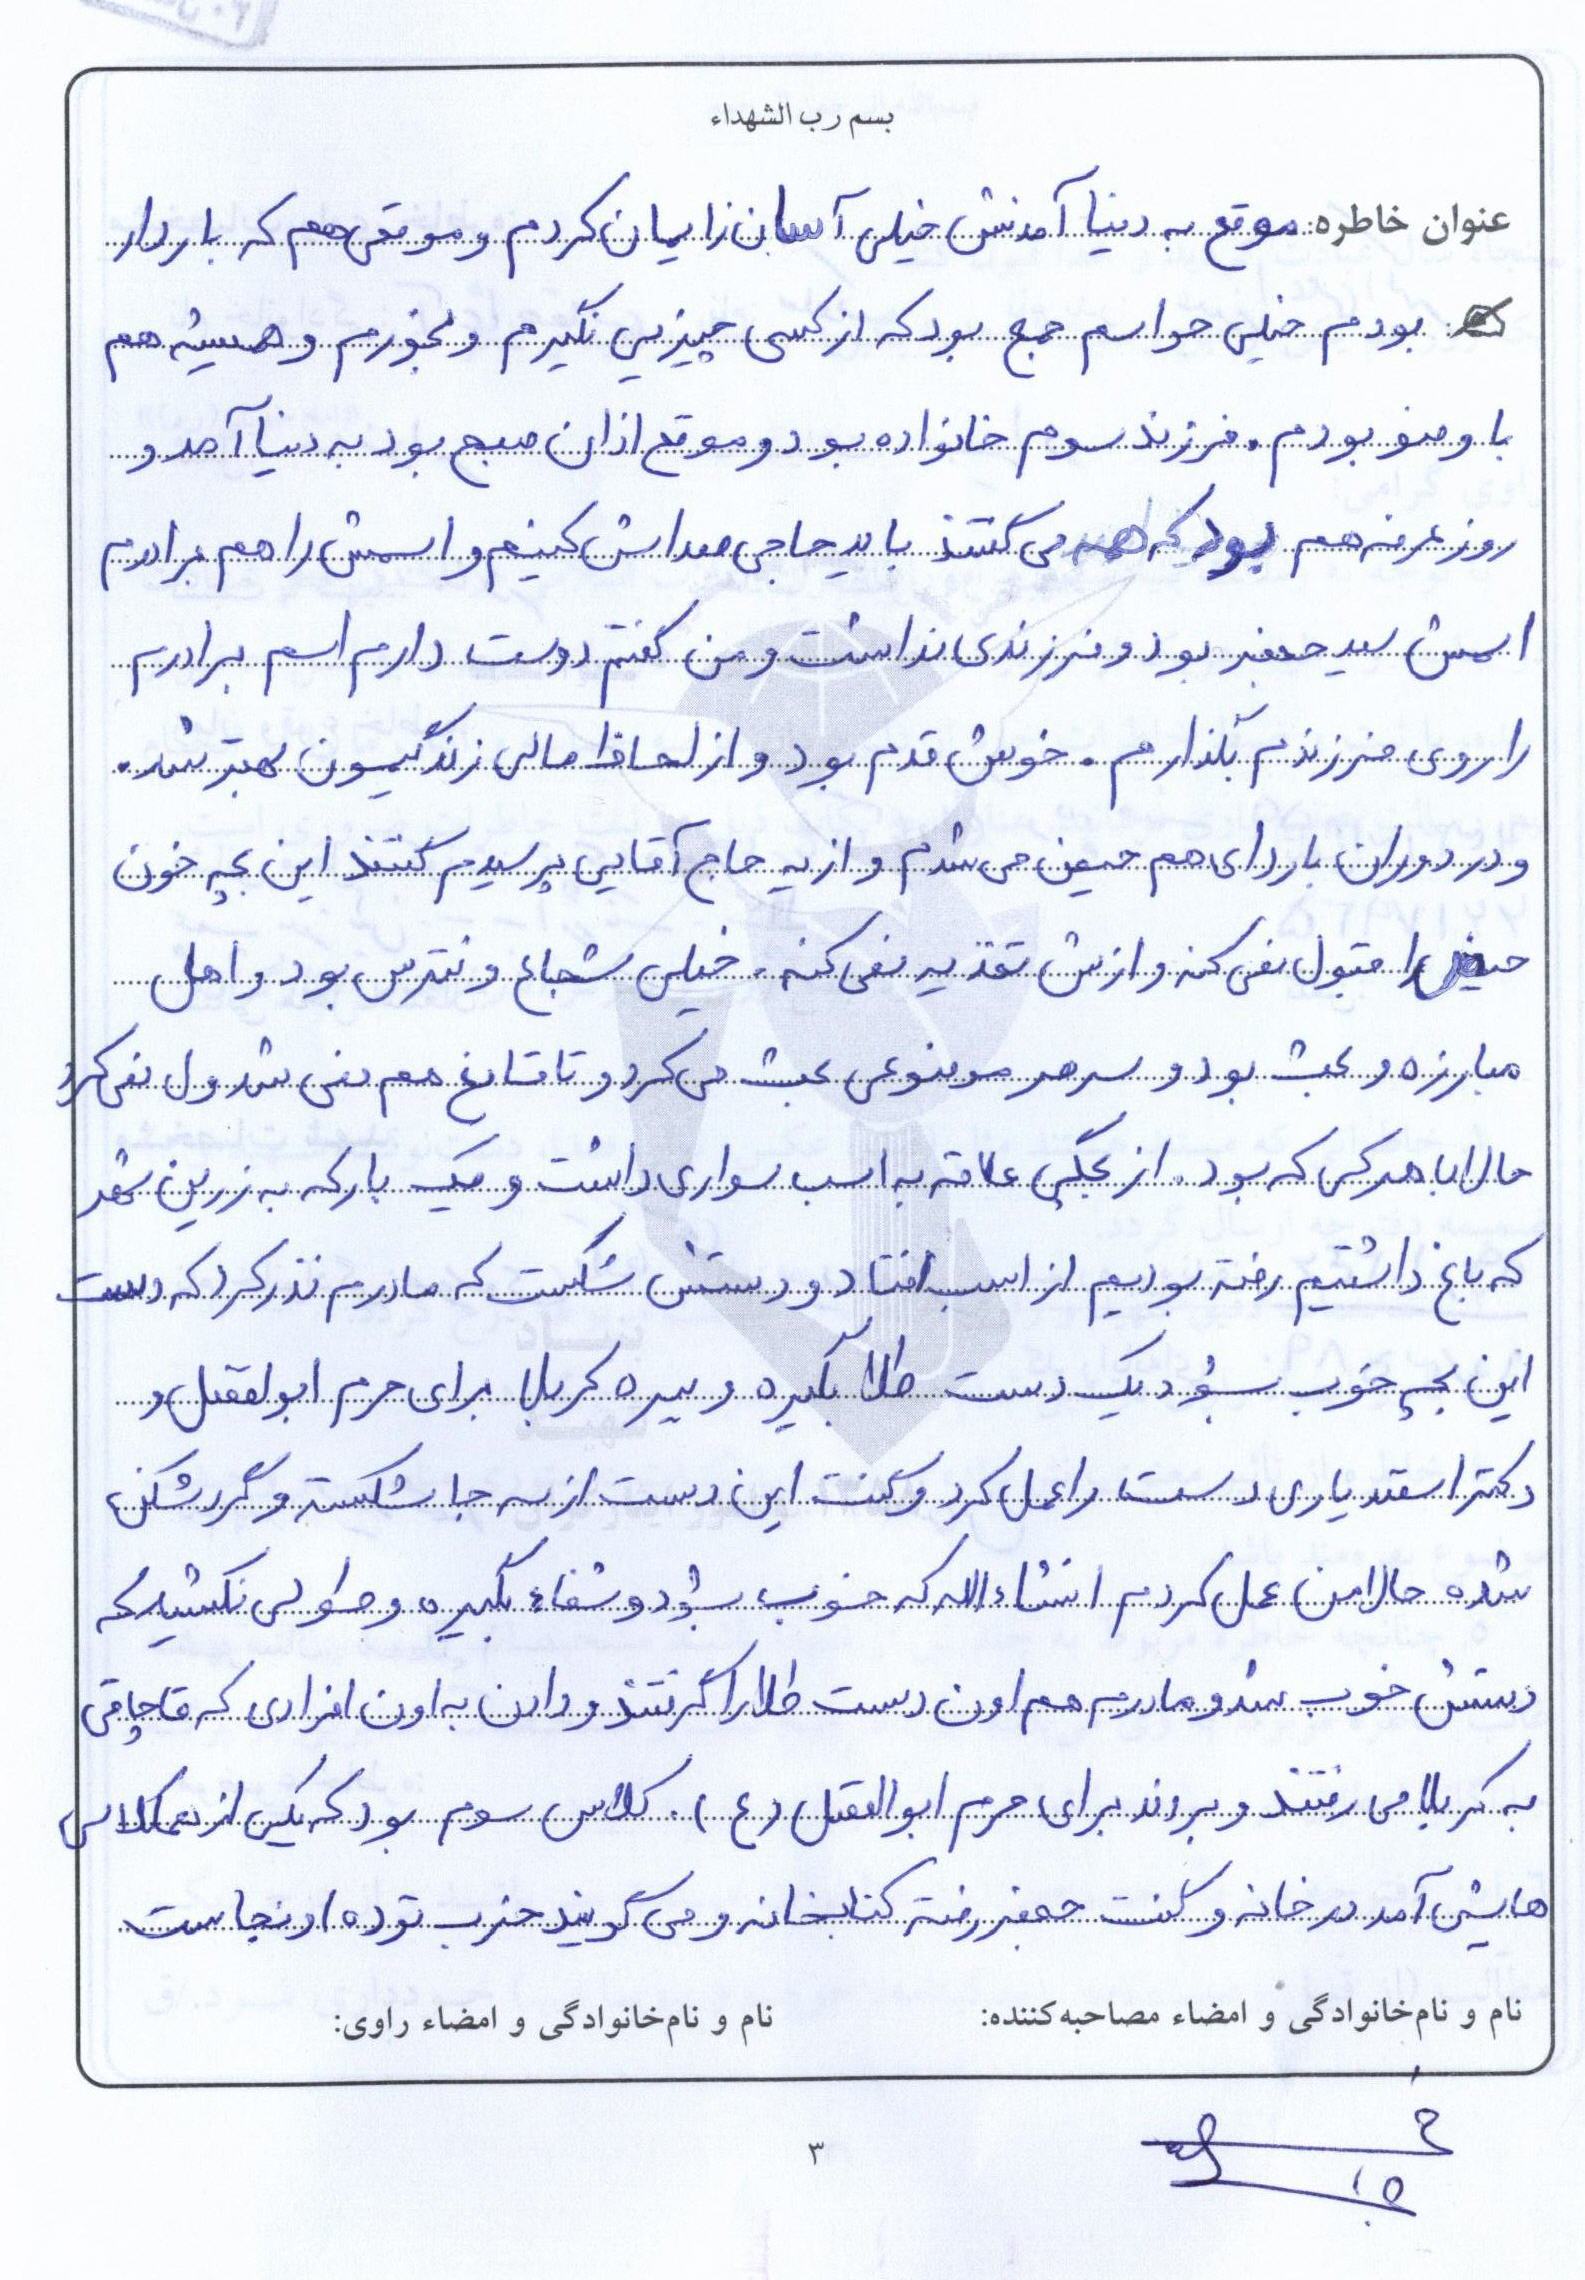 بسم رب الشهداء
عنوان خاطره: موقع به دنیا آمدنش خیلی آسان زایمان کردم و موقعی هم که باردار
بودم خیلی حواسم جمع بود که از کسی چیزیی نگیرم و نخورم و همیشه هم
با وضو بودم. فرزند سوم خانواده بود و موقع اذان صبح بود به دنیا آمد و
روز عرفه هم بود که همه می گفتند باید حاجی صداش کنیم و اسمش را هم برادرم
اسمش سید جعفر بود و فرزندی نداشت و من گفتم دوست دارم اسم برادرم
را روی فرزندم بگذارم. خوش قدم بود و از لحاظ مالی زندگیمون بهتر شد.
و در دوران بارداری هم حیض می شدم و از یه حاج آقایی پرسیدم گفتند این بچه خون
حیض را قبول نمی کنه و ازش تغذیه نمی کنه. خیلی شجاع و نترس بود و اهل
مبارزه و بحث بود و سر هر موضوعی بحث می کرد و تا قانع هم نمی شد ول نمی کرد
حالا با هر کس که بود. از بچگی علاقه به اسب سواری داشت و یک بار که به زرین شهر
که باغ داشتیم رفته بودیم از اسب افتاد و دستش شکست که مادرم نذر کرد که دست
این بچه خوب بشود یک دست طلا بگیره و ببره کربلا برای حرم ابولفضل و
دکتر اسفندیاری دست را عمل کرد و گفت این دست از سه جا شکسته و گرد شکن
شده حالا من عمل کردم انشاءالله که خوب بشود و شفاء بگیره و طولی نکشید که
دستش خوب شد و مادرم هم اون دست طلا را گرفتند و دادن به اون افرادی که قاچاقی
به کربلا می رفتند و بردند برای حرم ابوالفضل (ع). کلاس سوم بود که یکی از همکلاسی
هایش آمد در خانه و گفت جعفر رفته کتابخانه و می گویند حزب توده اونجاست
نام و نام‌خانوادگی و امضاء مصاحبه‌کننده:
نام و نام‌خانوادگی و امضاء راوی:
۳